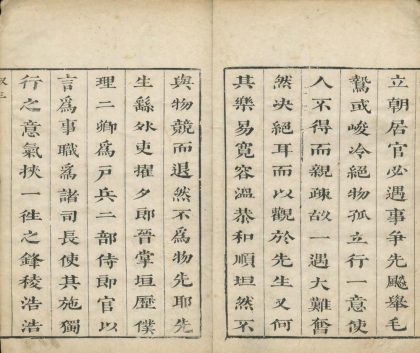 立朝居官必遇事争先颷舉毛
鷙或峻冷絕物孤立行一意使
人不得而親疎故一遇大難奮
然决絕耳而以觀於先生又何
其樂易寛容溫恭和順坦然不
與物競而退然不爲物先耶先
生繇外吏擢夕郎晉掌垣歷僕
理二卿爲戸兵二部侍郎官以
言爲事職爲諸司長使其施獨
行之意氣挾一徃之鋒稜浩浩